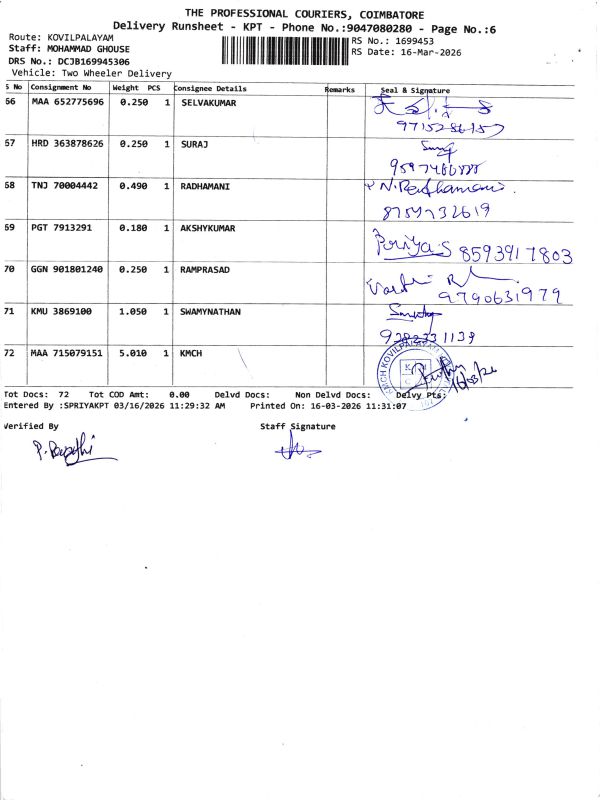 THE PROFESSIONAL COURIERS, COIMBATORE
Delivery Runsheet - KPT - Phone No.:9047080280 - Page No.:6
Route: KOVILPALAYAM
RS No.: 1699453
Staff: MOHAMMAD GHOUSE
RS Date: 16-Mar-2026
DRS No.: DCJB169945306
Vehicle: Two Wheeler Delivery
S No Consignment No Weight PCS Consignee Details Remarks Seal & Signature
66 MAA 652775696 0.250 1 SELVAKUMAR
67 HRD 363878626 0.250 1 SURAJ
68 TNJ 70004442 0.490 1 RADHAMANI N. Radhamani
8759732619
69 PGT 7913291 0.180 1 AKSHYKUMAR Periya.S 8593917803
70 GGN 901801240 0.250 1 RAMPRASAD
9790631979
71 KMU 3869100 1.050 1 SWAMYNATHAN
72 MAA 715079151 5.010 1 KMCH KMCH KOVILPALAYAM 16/03/26
Tot Docs: 72 Tot COD Amt: 0.00 Delvd Docs: Non Delvd Docs: Delvy Pts:
Entered By :SPRIYAKPT 03/16/2026 11:29:32 AM Printed On: 16-03-2026 11:31:07
Verified By Staff Signature